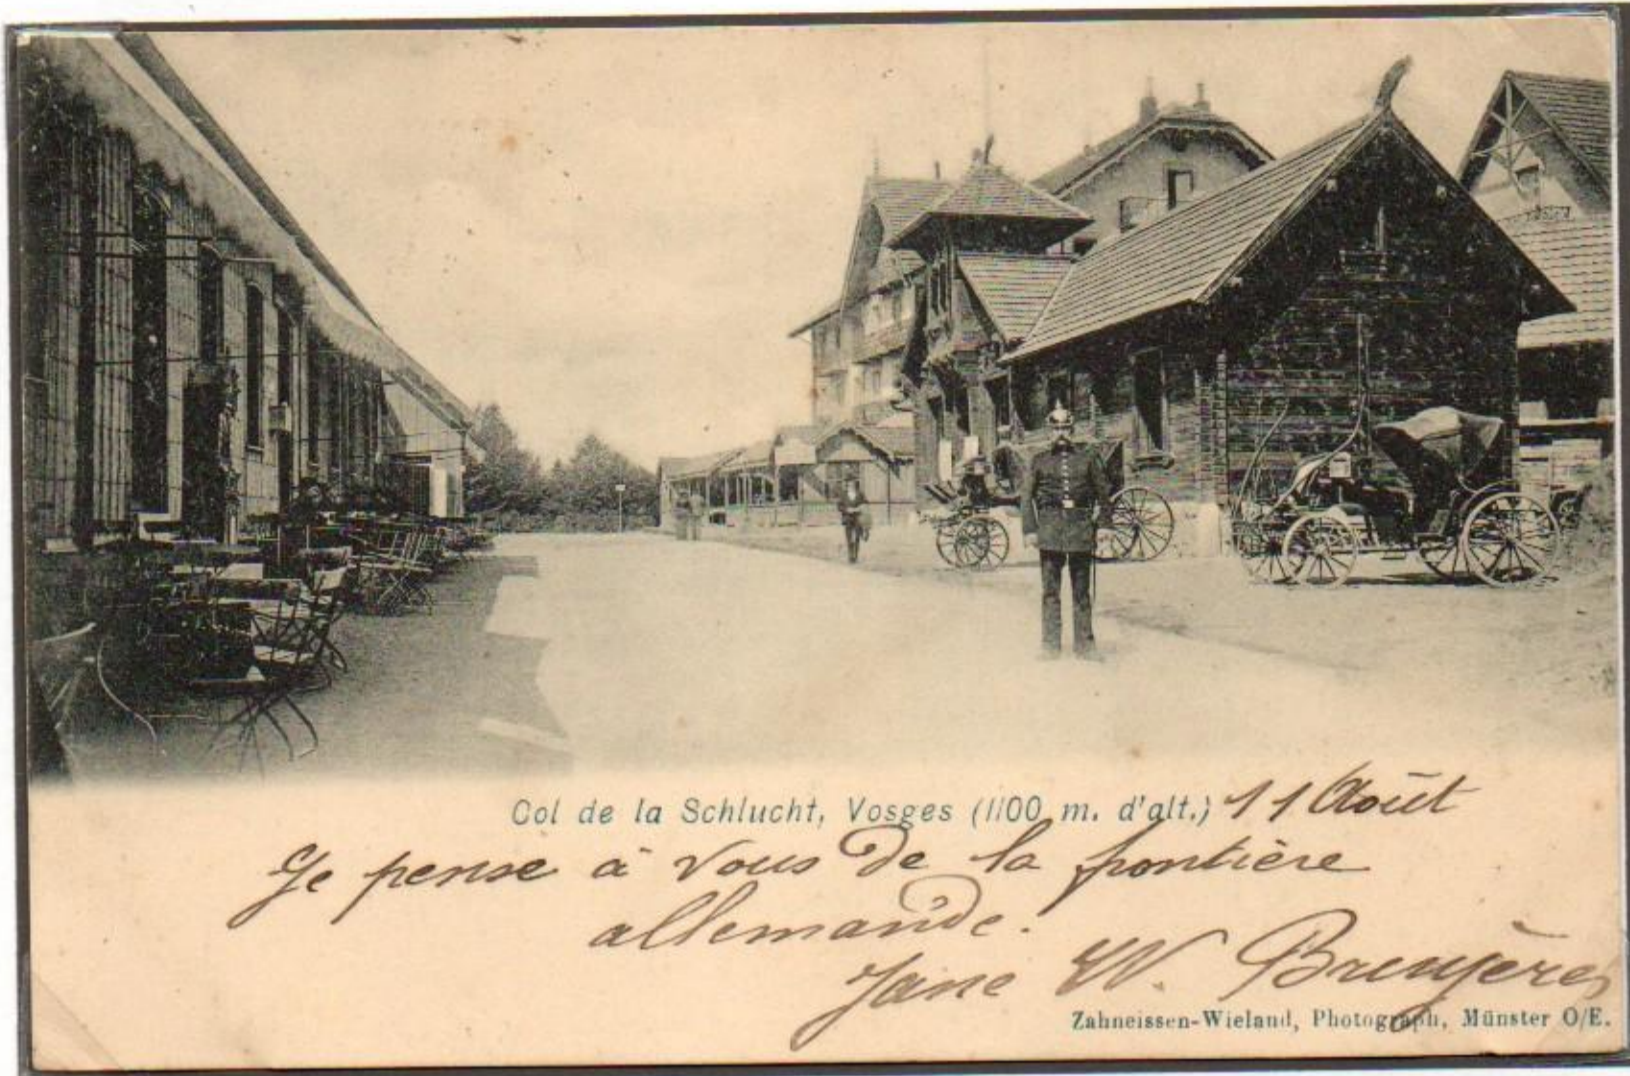 Col de la Schlucht, Vosges (1100 m. d'alt.) 11 Août
Je pense à vous de la frontière
allemande.
Jane W. Bruyères
Zahneissen-Wieland, Photograph, Münster O/E.